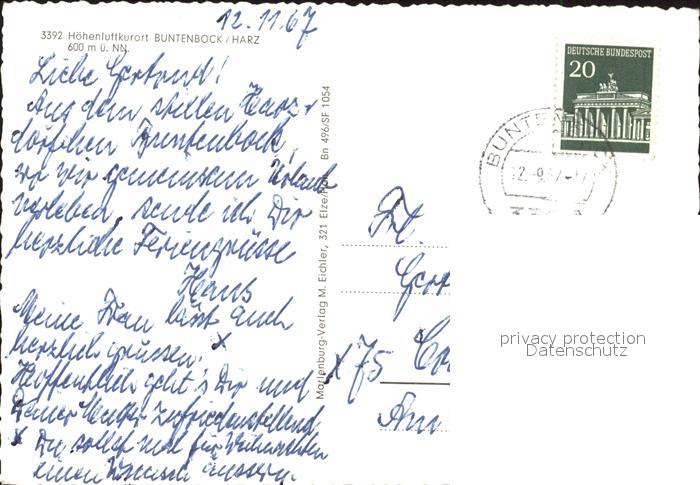 12.11.67
3392 Höhenluftkurort BUNTENBOCK / HARZ
600 m ü. NN.
Liebe Gertrud!
Aus dem stillen Harz-
dörfchen Buntenbock,
wo wir gemeinsam Urlaub
verleben, sende ich Dir
herzliche Feriengrüsse
Hans
Meine Frau lässt auch
herzlich grüssen. x
Hoffentlich geht's Dir und
Deiner Mutter zufriedenstellend
x Du sollst mal für Weihnachten
einen Wunsch äussern.
Marienburg-Verlag M. Eichler, 321 Elze/Han. Bn 496/SF 1054
DEUTSCHE BUNDESPOST
20
BUNTENBOCK
Frl.
Ger
x 75
An
privacy protection
Datenschutz